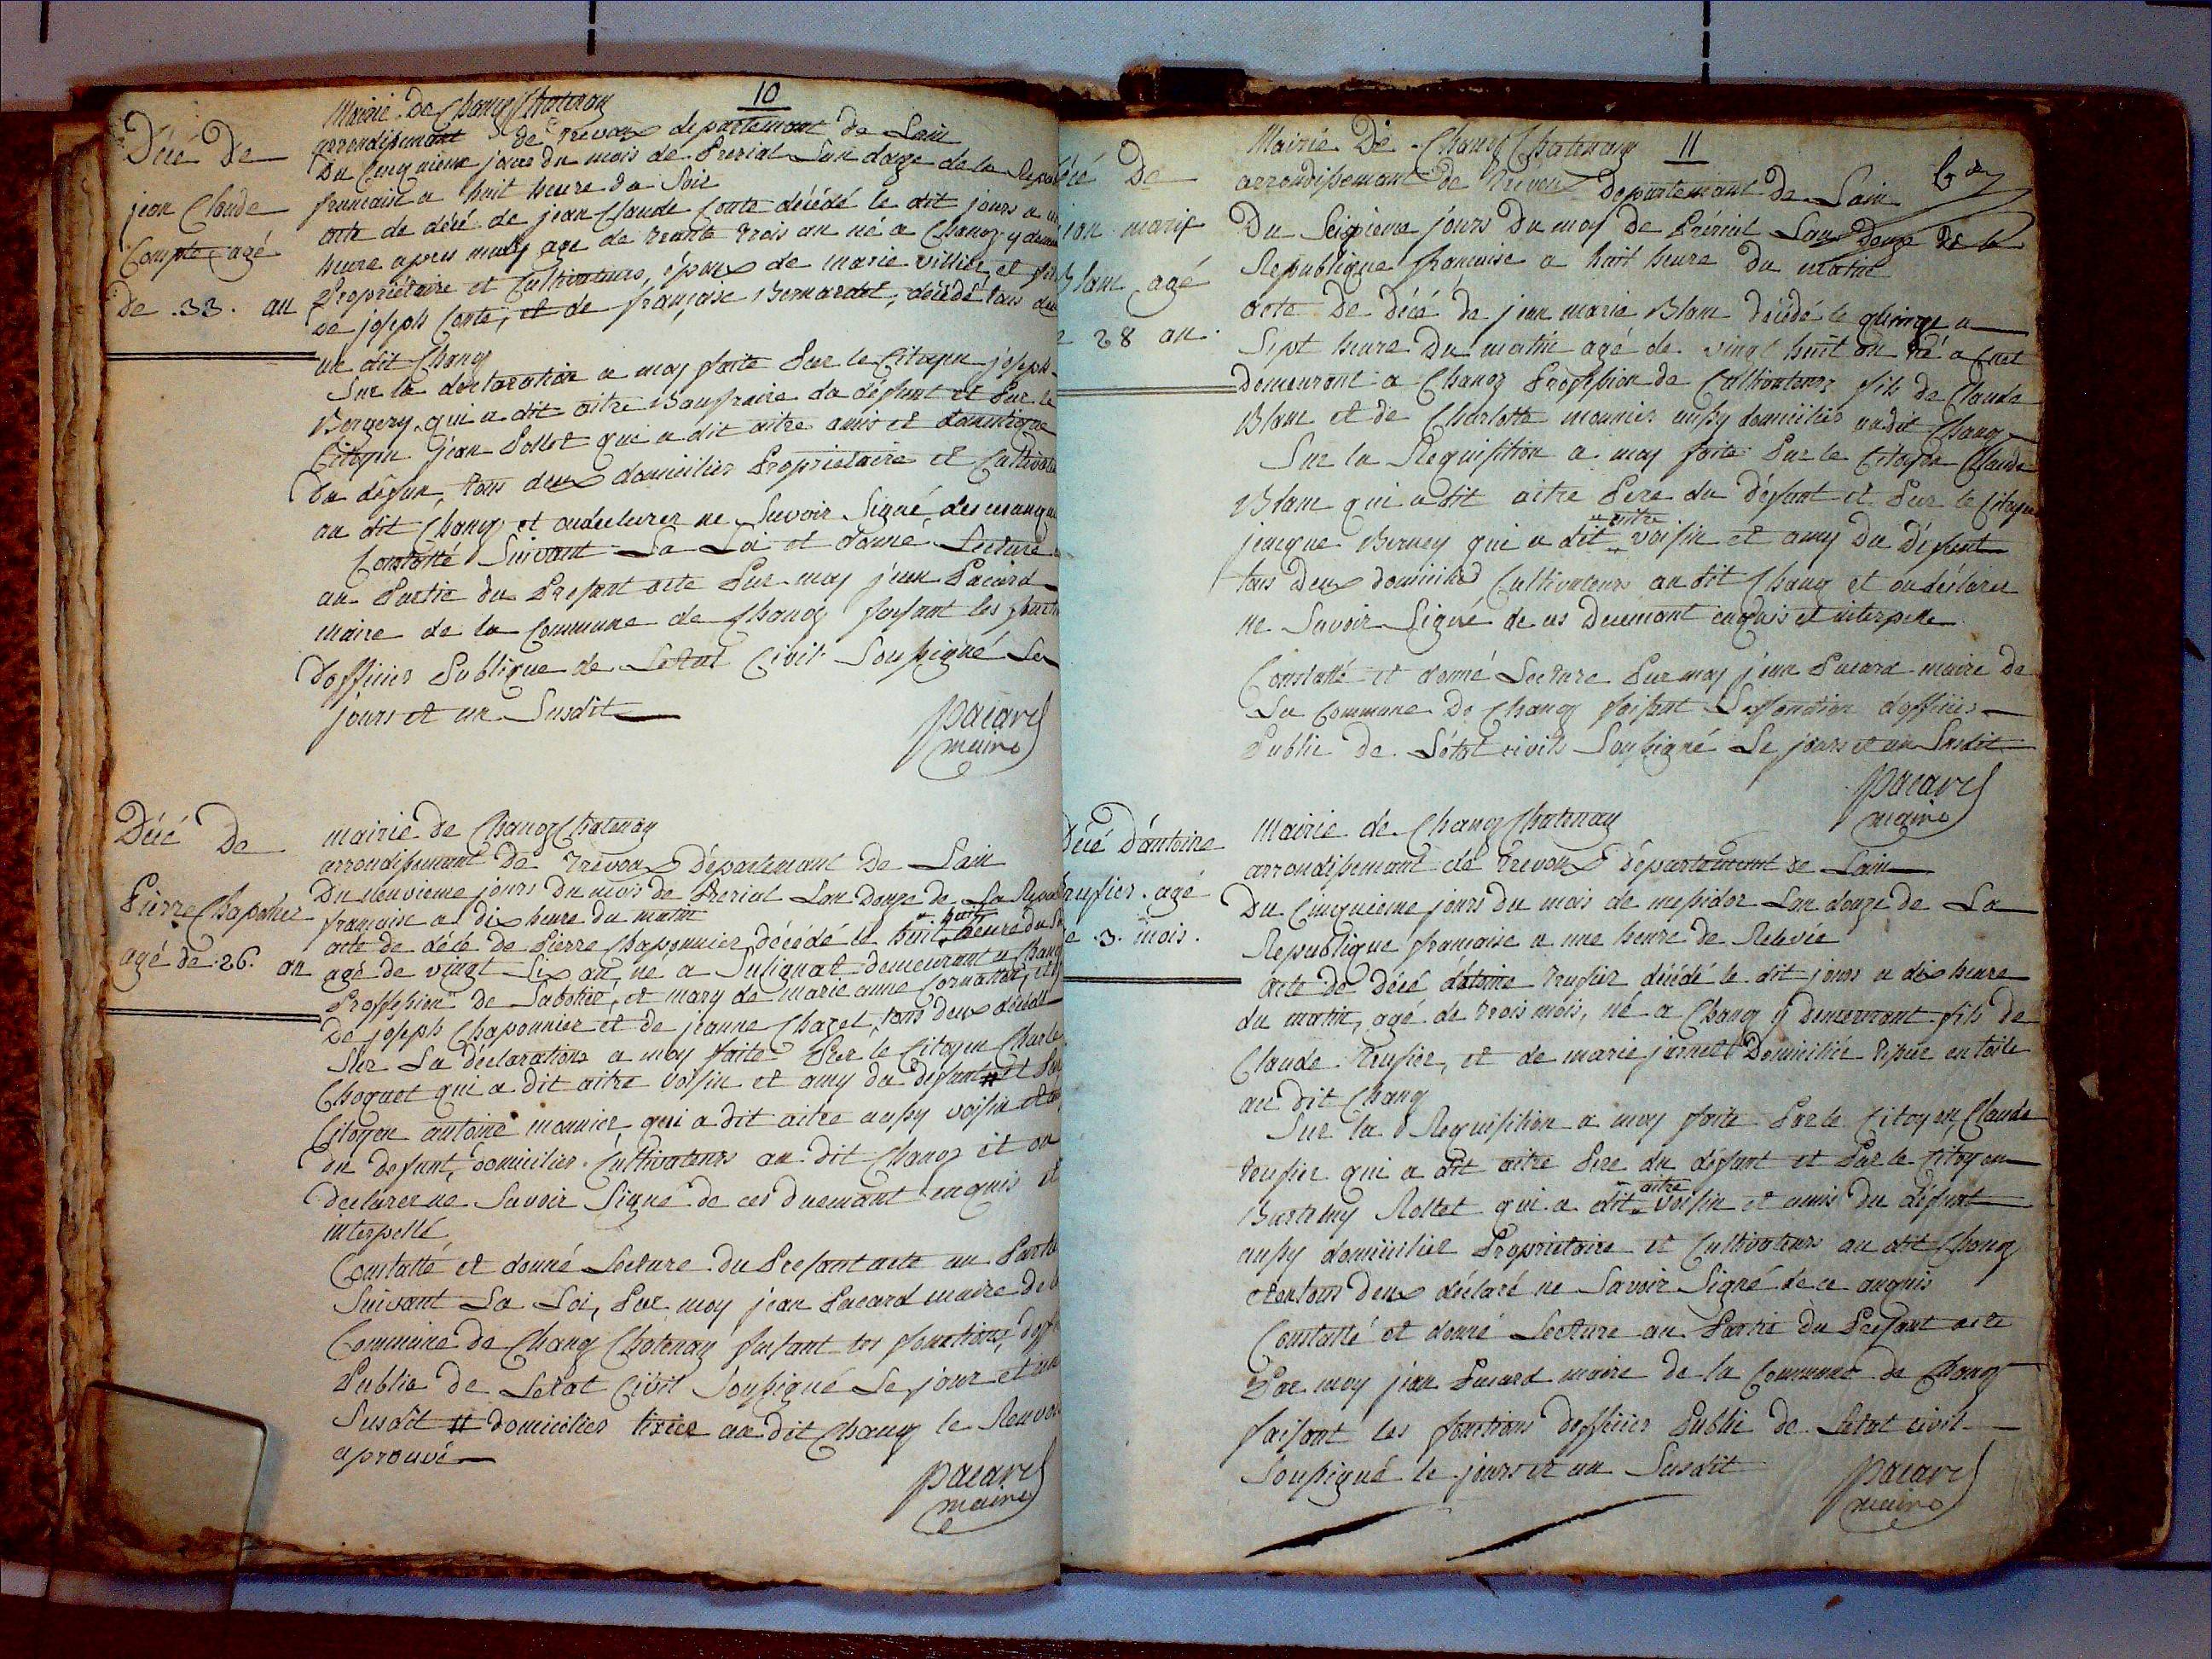 10
Décé De
jean Claude
Compte agé
De .33. an
Mairie De Chanoz Chatenay
arrondissemant de Trevoux departemant de Lain
Du Cinquieme jours du mois de Prerial Lan douze de la Repub
francaise a huit heure du Soir
acte de décé de jean Claude Conte décédé le dit jours a
heure apres midy age de trante trois an né a Chanoz y demeu
Propriétaire et Cultivateurs, époux de marie villier et fils
de joseph Conte, et de françoise Bernardet, décédé tous deu
au dit Chanoz
Sur la déclaration a moy faite Par le Citoyen joseph
Bergery qui a dit aitre Baufraire du défunt et Par le
Citoyen jean Pollet qui a dit aitre amis et domestique
Du défun, tous deux domicilier Propriétaire et Cultivate
au dit Chanoz et ondeclarer ne Savoir Signé des ce enquis
Constatté Suivant La Loi et donné Lecture
au Partie du Present acte Par moy jean Pacard
maire de la Commune de Chanoz faisant les foncti
Dofficier Publique de Letat Civil Soussigné Le
jours et an Susdit
pacard
maire
Décé De
Pierre Chaponier
agé de .26. an
mairie de Chanoz Chatenay
arrondissemant De Trevoux Département De Lain
Du neuvieme jours Du mois de Prerial Lan Douze De La Repub
française a dix heure du matin
acte de décé de Pierre Chaponnier décédé le huit heure du
agé de vingt Six an né a Sulignat demeurant a Chanoz
Proffession de Sabotier, et mary de marie anne Cornaton, et
De joseph Chaponnier et de jeanne Chazel, tous deux décédé
Sur La déclarations a moy faite Par le Citoyen Charle
Choquet qui a dit aitre voisin et amy du défunt # et Par
Citoyen antoine monnier qui a dit aitre aussy voisin et a
du defunt, domicilier Cultivateurs au dit Chanoz et on
declarer ne Savoir Signé de ces duemant enquis et
interpellé
Constatté et donné Lecture du Present acte au Partie
Suivant La Loi, Par moy jean Pacard maire de la
Commune de Chanoz Chatenay faisant les fonctions, doff
Publie de Letat Civil Soussigné Le jour et an
Susdit # domicilier tixier au dit Chanoz le Renvoi
aprouvé
pacard
maire
11
Décé De
jean marie
Blanc agé
de 28 an.
Mairie De Chanoz Chatenay
arrondissemant de Trevoux Departemant de Lain
Du Seizieme jours Du moy de Prérial Lan Douze De la
Republique francaise a huit heure du matin
acte De décé de jean marie Blanc décédé le quinze a
Sept heure Du matin agé de vingt huit an né a Cuet
Demeurant a Chanoz Profession de Cultivateurs fils de Claude
Blanc et de Charlotte monnier aussy domicilier audit Chanoz
Sur la Requisition a moy faite Par le Citoyen Claude
Blanc qui a dit aitre Pere du défunt et Par le Citoyen
jacque Berney qui a dit aitre voisin et amy Du Défunt
tous Deux domicilié Cultivateurs au dit Chanoz et on déclarer
ne Savoir Signé de ces Duemant enquis et interpelle
Constatté et donné Lecture Par moy jean Pacard maire de
La Commune De Chanoz faisant Les fonction dofficier
Public De Létat civile Soussigné Le jours et an Susdit
pacard
maire
Décé D'antoine
trufier agé
de .3. mois.
Mairie de Chanoz Chatenay
arrondissemant de Trevoux département de Lain
Du Cinquieme jours du mois de messidor Lan douze De La
Republique francaise a une heure de Relevée
acte de décé d'atoine trufier décédé le dit jours a dix heure
du matin, agé de trois mois, né a Chanoz y demeurant fils de
Claude trufier, et de marie jannet Domicilié Tixier en toile
au dit Chanoz
Sur la Requisition a moy faite Par le Citoyen Claude
trufier qui a dit aitre Pere du défunt et Par le Citoyen
Bartemy Rollet qui a dit aitre voisin et amis du défunt
aussy domicilier Propriétaire et Cultivateurs au dit Chanoz
et on tous deux déclaré ne Savoir Signé de ce anquis
Constatté et donné Lecture au Partie Du Present acte
Par moy jean Pacard maire de la Commune de Chanoz
faisant les fonctions dofficier Public de Letat civil
Soussigné le jours et an Susdit
pacard
maire